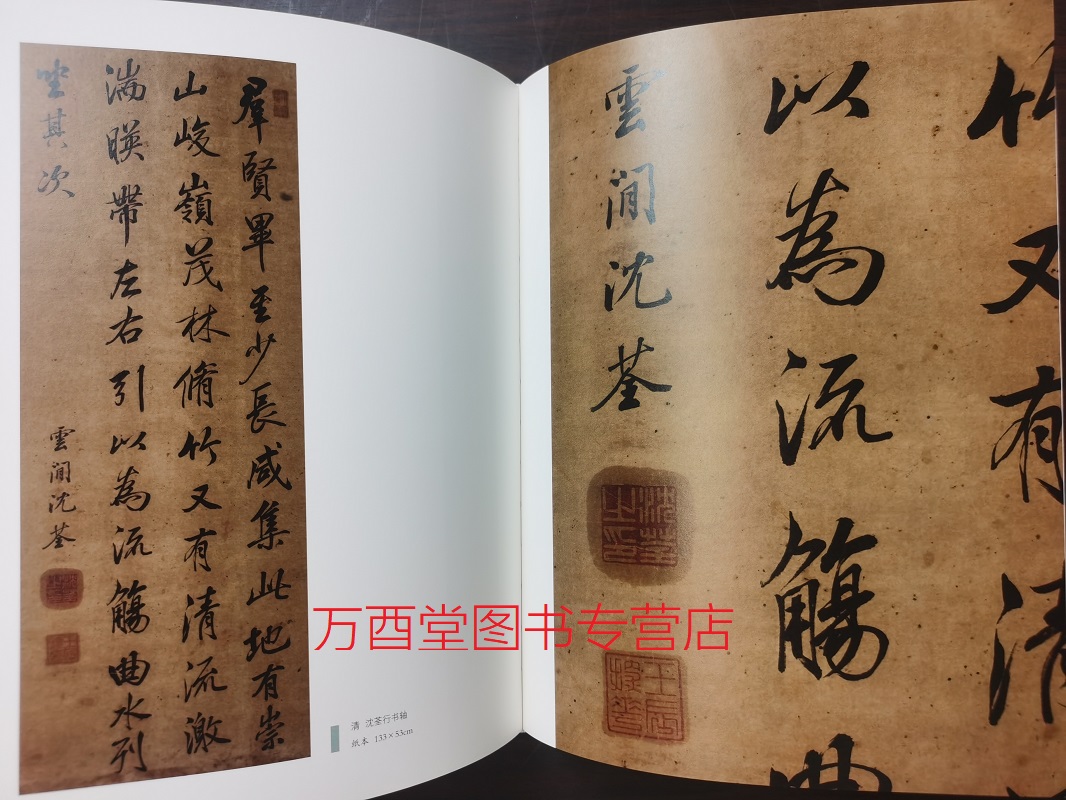 羣賢畢至少長咸集此地有崇
山峻嶺茂林脩竹又有清流激
湍暎帶左右引以為流觴曲水列
坐其次
雲間沈荃
清 沈荃行书轴
纸本 133×53cm
竹又有清
以為流觴曲
雲間沈荃
沈荃之印
壬辰探花
万西堂图书专营店